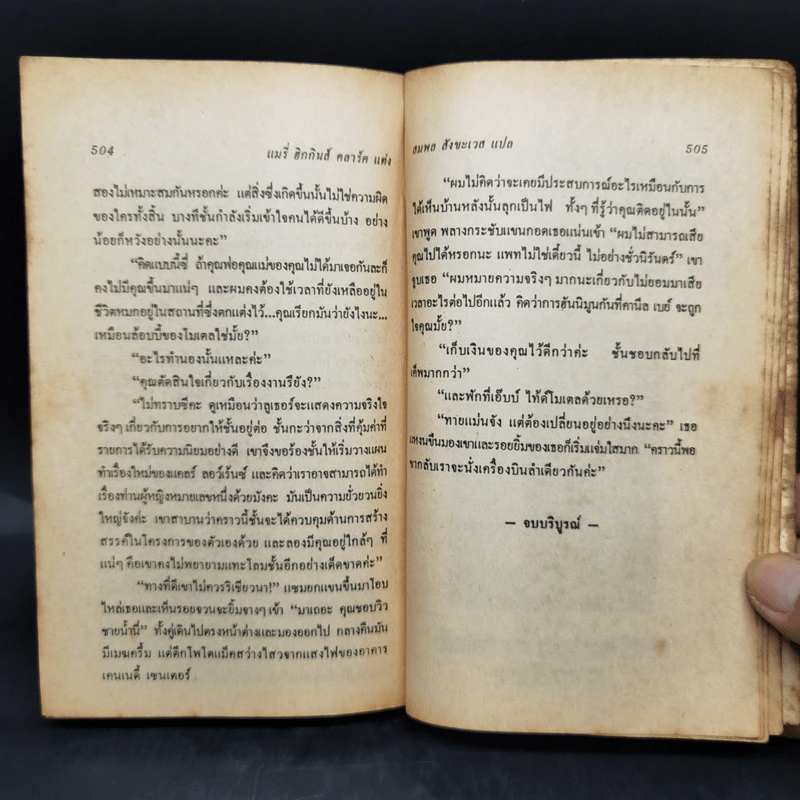 504
แมรี่ ฮิกกินส์ คลาร์ค แต่ง
สองไม่เหมาะสมกันหรอกค่ะ แต่สิ่งซึ่งเกิดขึ้นนั้นไม่ใช่ความผิด
ของใครทั้งสิ้น บางทีชั้นกำลังเริ่มเข้าใจคนได้ดีขึ้นบ้าง อย่าง
น้อยก็หวังอย่างนั้นนะคะ”
“คิดแบบนี้ซี่ ถ้าคุณพ่อคุณแม่ของคุณไม่ได้มาเจอกันละก็
คงไม่มีคุณขึ้นมาแน่ๆ และผมคงต้องใช้เวลาที่ยังเหลืออยู่ใน
ชีวิตหมกอยู่ในสถานที่ซึ่งตกแต่งไว้...คุณเรียกมันว่ายังไงนะ...
เหมือนล้อบบี้ของโมเตลใช่มั้ย?”
“อะไรทำนองนั้นแหละค่ะ”
“คุณตัดสินใจเกี่ยวกับเรื่องงานรึยัง?”
“ไม่ทราบซีคะ ดูเหมือนว่าลูเธอร์จะแสดงความจริงใจ
จริงๆ เกี่ยวกับการอยากให้ชั้นอยู่ต่อ ชั้นกะว่าจากสิ่งที่คุ้มค่าที่
รายการได้รับความนิยมอย่างดี เขาจึงขอร้องชั้นให้เริ่มวางแผน
ทำเรื่องใหม่ของแคลร์ ลอว์เร้นซ์ และคิดว่าเราอาจสามารถได้ทำ
เรื่องท่านผู้หญิงหมายเลขหนึ่งด้วยมังคะ มันเป็นความยั่วยวนยิ่ง
ใหญ่จังค่ะ เขาสาบานว่าคราวนี้ชั้นจะได้ควบคุมด้านการสร้าง
สรรค์ในโครงการของตัวเองด้วย และลองมีคุณอยู่ใกล้ๆ ที่
แน่ๆ คือเขาคงไม่พยายามแทะโลมชั้นอีกอย่างเด็ดขาดค่ะ”
“ทางที่ดีเขาไม่ควรริเชียวนา!” แซมยกแขนขึ้นมาโอบ
ไหล่เธอและเห็นรอยจวนจะยิ้มจางๆ เข้า “มาเถอะ คุณชอบวิว
ชายน้ำนี่” ทั้งคู่เดินไปตรงหน้าต่างและมองออกไป กลางคืนมัน
มีเมฆครึ้ม แต่ตึกโพโตแม็คสว่างไสวจากแสงไฟของอาคาร
เคนเนดี้ เซนเตอร์
สมพล สังขะเวส แปล
505
“ผมไม่คิดว่าจะเคยมีประสบการณ์อะไรเหมือนกับการ
ได้เห็นบ้านหลังนั้นลุกเป็นไฟ ทั้งๆ ที่รู้ว่าคุณติดอยู่ในนั้น”
เขาพูด พลางกระชับแขนกอดเธอแน่นเข้า “ผมไม่สามารถเสีย
คุณไปได้หรอกนะ แพทไม่ใช่เดี๋ยวนี้ ไม่อย่างชั่วนิรันดร์” เขา
จูบเธอ “ผมหมายความจริงๆ มากนะเกี่ยวกับไม่ยอมมาเสีย
เวลาอะไรต่อไปอีกแล้ว คิดว่าการฮันนิมูนกันที่คานีล เบย์ จะถูก
ใจคุณมั้ย?”
“เก็บเงินของคุณไว้ดีกว่าค่ะ ชั้นชอบกลับไปที่
เค็พมากกว่า”
“และพักที่เอ๊บบ์ ไท้ด์โมเตลด้วยเหรอ?”
“ทายแม่นจัง แต่ต้องเปลี่ยนอยู่อย่างนึงนะคะ” เธอ
แหงนขึ้นมองเขาและรอยยิ้มของเธอก็เริ่มแจ่มใสมาก “คราวนี้พอ
ขากลับเราจะนั่งเครื่องบินลำเดียวกันค่ะ”
— จบบริบูรณ์ —